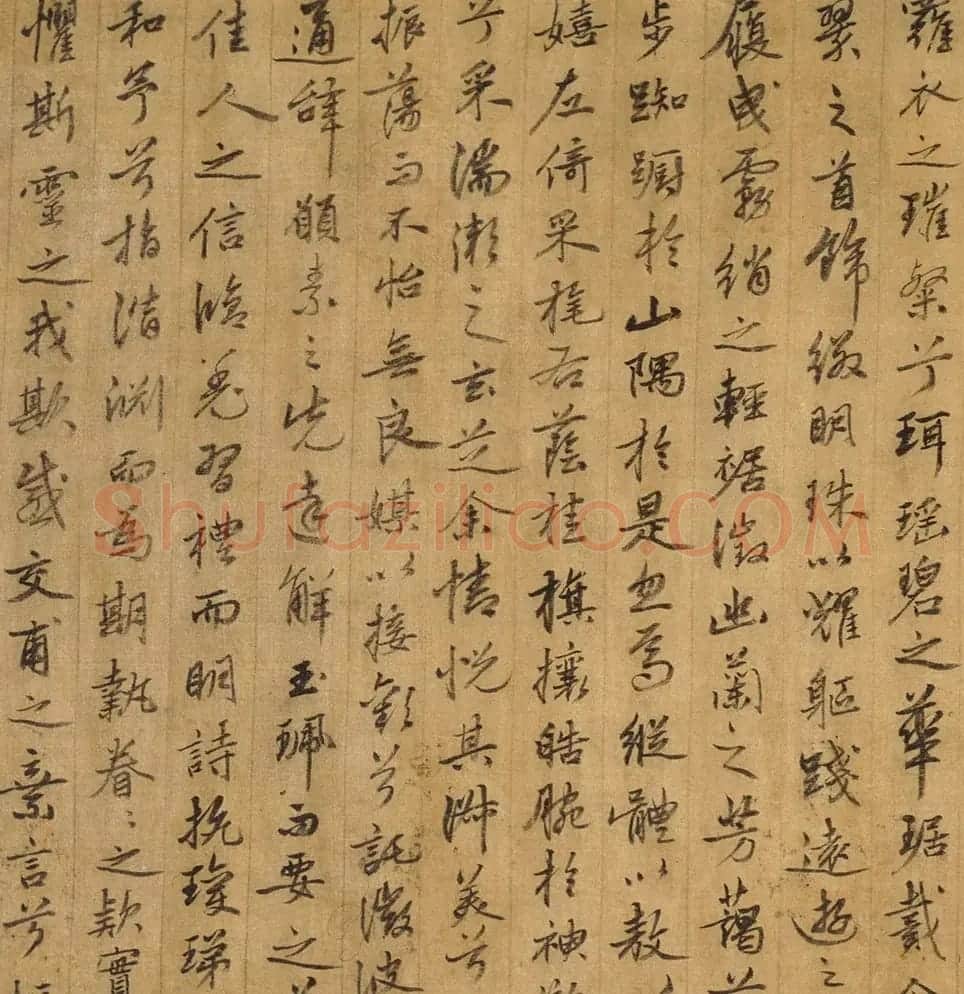 羅衣之璀粲兮珥瑤碧之華琚戴
翠之首飾綴明珠以耀軀踐遠遊之
履曳霧綃之輕裾微幽蘭之芳藹
步踟躕於山隅於是忽焉縱體以敖
嬉左倚采旄右蔭桂旗攘皓腕於神
兮采湍瀨之玄芝余情悅其淑美兮
振蕩而不怡無良媒以接歡兮託微波
通辭願素之先達解玉珮而要之
佳人之信脩羌習禮而明詩抗瓊珶
和予兮指潛淵而為期執眷〻之款實
懼斯靈之我欺感交甫之棄言兮
Shufaziliao.COM